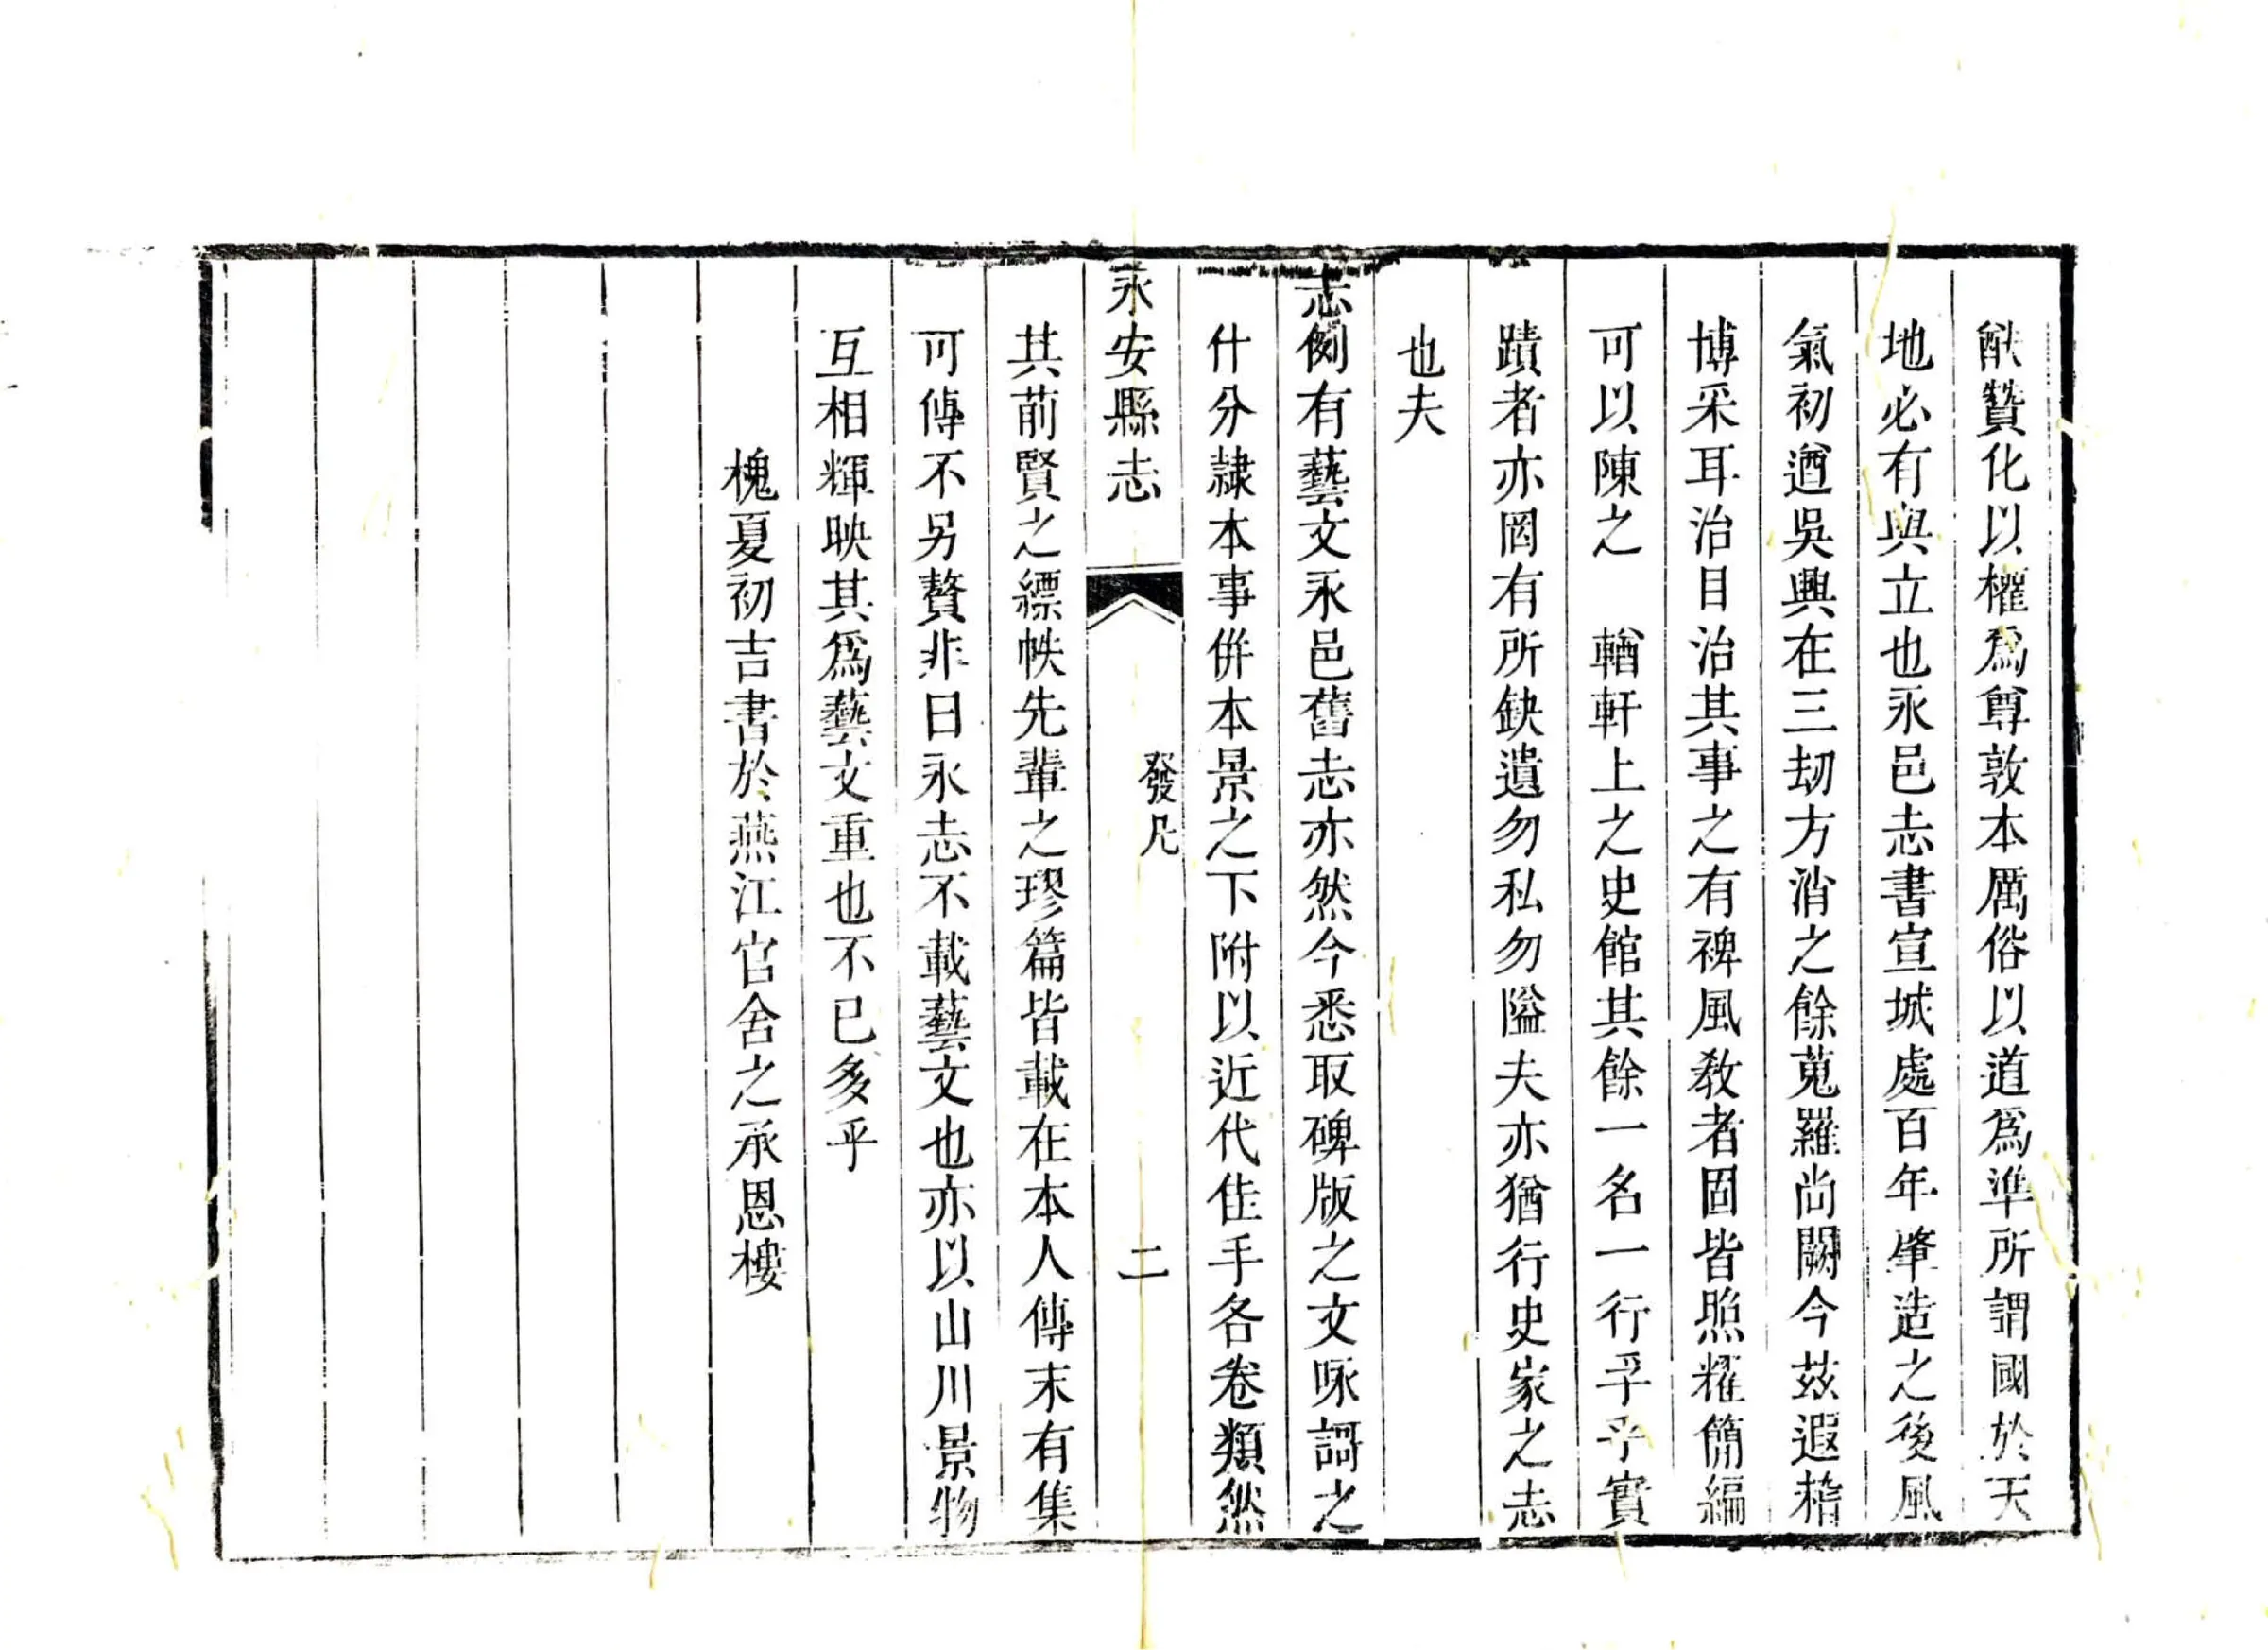 猷贊化以權爲尊敦本厲俗以道爲準所謂國於天
地必有與立也永邑志書宣城處百年肇造之後風
氣初遒吳興在三刼方消之餘蒐羅尚闕今茲遐稽
博采耳治目治其事之有裨風教者固皆照耀簡編
可以陳之　輶軒上之史館其餘一名一行孚乎實
蹟者亦罔有所缺遺勿私勿隘夫亦猶行史家之志
也夫
志例有藝文永邑舊志亦然今悉取碑版之文咏謌之
什分隷本事倂本景之下附以近代佳手各卷類然
永安縣志　發凡　二
其前賢之縹帙先輩之璆篇皆載在本人傳末有集
可傳不另贅非曰永志不載藝文也亦以山川景物
互相輝映其爲藝文重也不已多乎
槐夏初吉書於燕江官舍之承恩樓